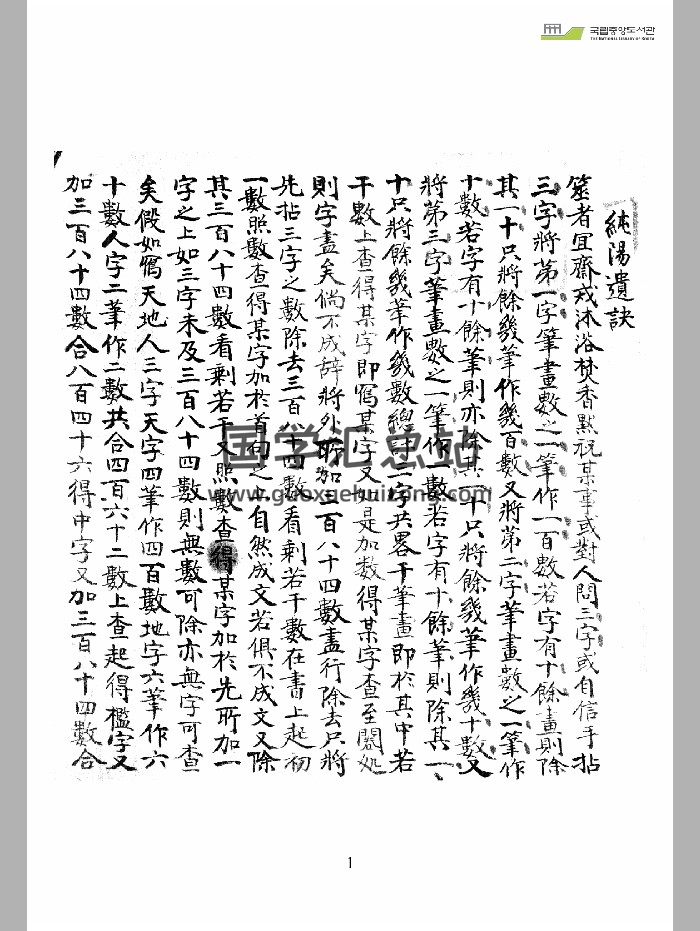 국립중앙도서관
THE NATIONAL LIBRARY OF KOREA
純陽遺訣
筮者宜齋戒沐浴焚香默祝某事或對人問三字或自信手拈
三字將第一字筆畫數之一筆作一百數若字有十餘畫則除
其一十只將餘幾筆作幾百數又將第二字筆畫數之一筆作
十數若字有十餘筆則亦除其一十只將餘幾筆作幾十數又
將第三字筆畫數之一筆作一數若字有十餘筆則除其一
十只將餘幾筆作幾數總計三字共畧干筆畫即於其中若
干數上查得某字即寫某字又如是加数得某字查至闕処
則字盡矣倘不成辞將外所加三百八十四數盡行除去只將
先拈三字之數除去三百八十四數看剩若干數在書上起初
一數照數查得某字加於首句之上自然成文若俱不成文又除
其三百八十四數看剩若干又照數查得某字加於先所加一
字之上如三字未及三百八十四數則無數可除亦無字可查
矣假如寫天地人三字天字四筆作四百數地字六筆作六
十數人字二筆作二數共合四百六十二數上查起得檻字又
加三百八十四數合八百四十六得中字又加三百八十四數合
国学汇总站
www.guoxuehuizong.com
1